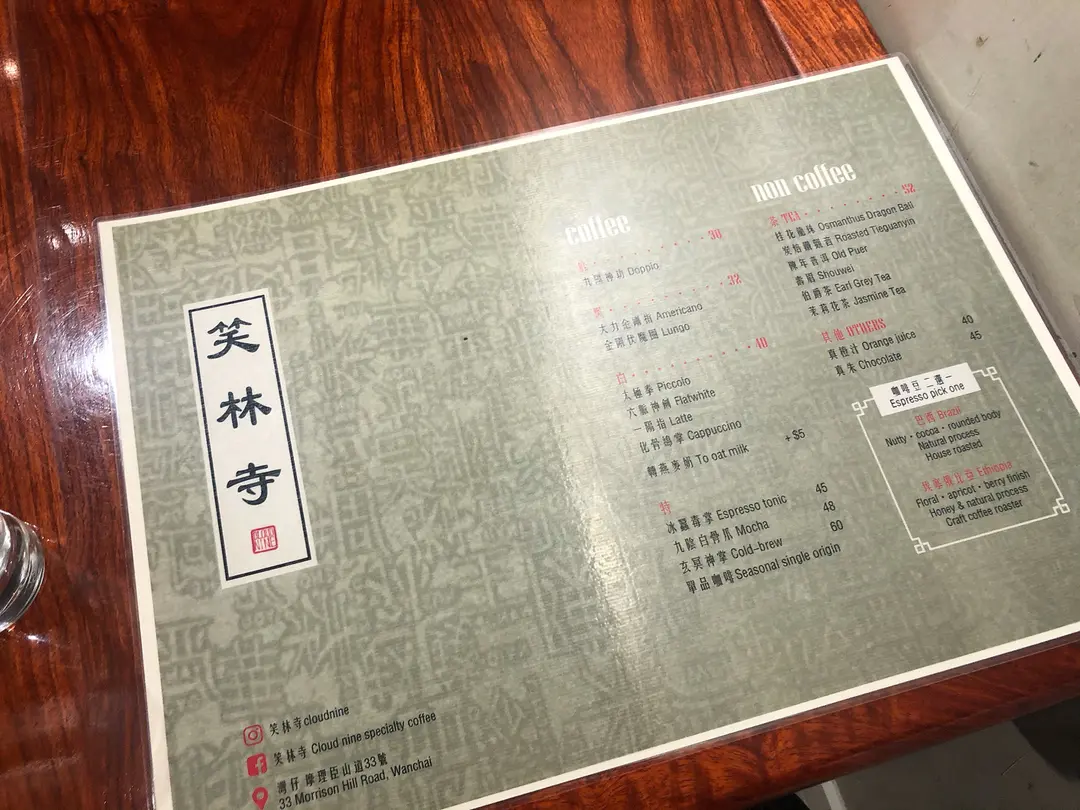 笑林寺
笑林寺cloudnine
笑林寺 Cloud nine specialty coffee
灣仔 摩理臣山道33號
33 Morrison Hill Road, Wanchai
coffee
· · · · · · · 30
九陽神功 Doppio
黑 · · · · · · · 32
大力金剛指 Americano
金剛伏魔圈 Lungo
白 · · · · · · · 40
太極拳 Piccolo
六脈神劍 Flatwhite
一陽指 Latte
化骨綿掌 Cappuccino
轉燕麥奶 To oat milk +$5
特
冰蠶毒掌 Espresso tonic 45
九陰白骨爪 Mocha 48
玄冥神掌 Cold-brew 60
單品咖啡 Seasonal single origin
non coffee
茶 TEA · · · · · · · 52
桂花龍珠 Osmanthus Dragon Ball
炭焙鐵觀音 Roasted Tieguanyin
陳年普洱 Old Puer
壽眉 Shouwei
伯爵茶 Earl Grey Tea
茉莉花茶 Jasmine Tea
其他 OTHERS
真橙汁 Orange juice 40
真朱 Chocolate 45
咖啡豆 二選一
Espresso pick one
巴西 Brazil
Nutty · cocoa · rounded body
Natural process
House roasted
埃塞俄比亞 Ethiopia
Floral · apricot · berry finish
Honey & natural process
Craft coffee roaster